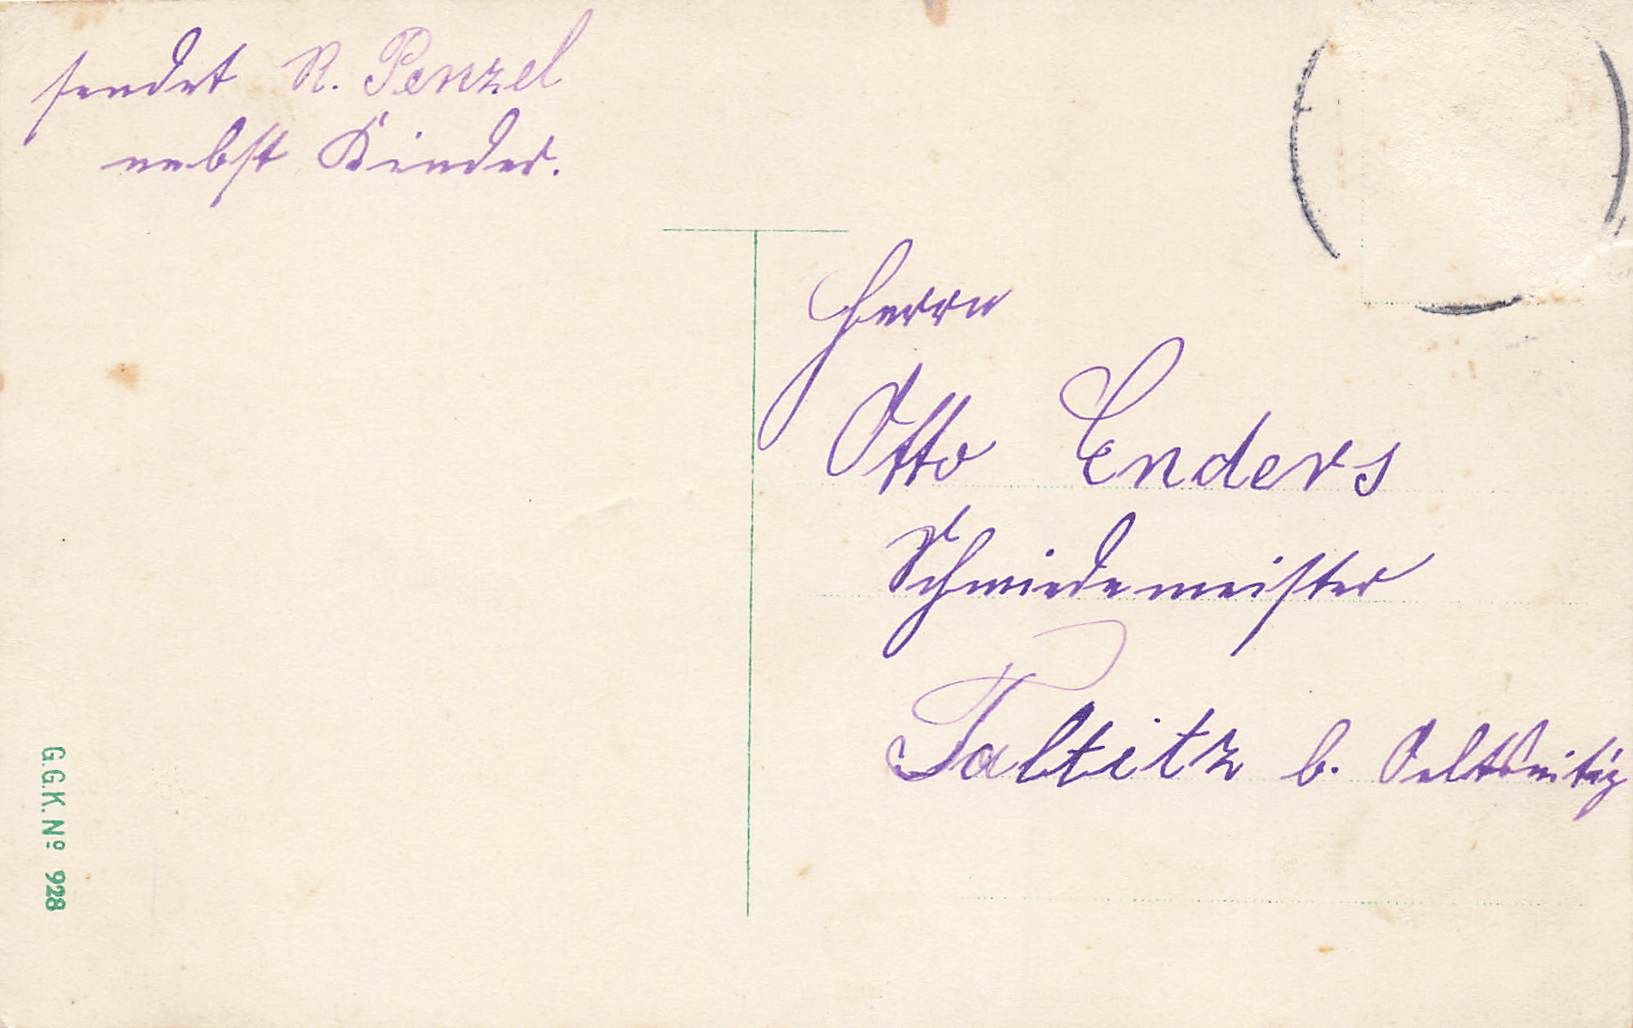 sendet R. Penzel
nebst Kinder.
Herrn
Otto Enders
Schmiedemeister
Taltitz b. Oelsnitz
G.G.K. Nº 928